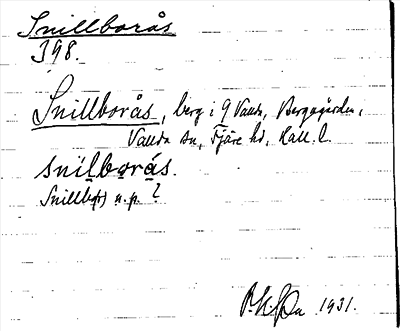 Snillborås
398.
Snillborås, berg i 9 Vallda, Berggården,
Vallda sn, Fjäre hd, Hall. l.
snilborás.
Snillb(or) n. p. ?
1931.